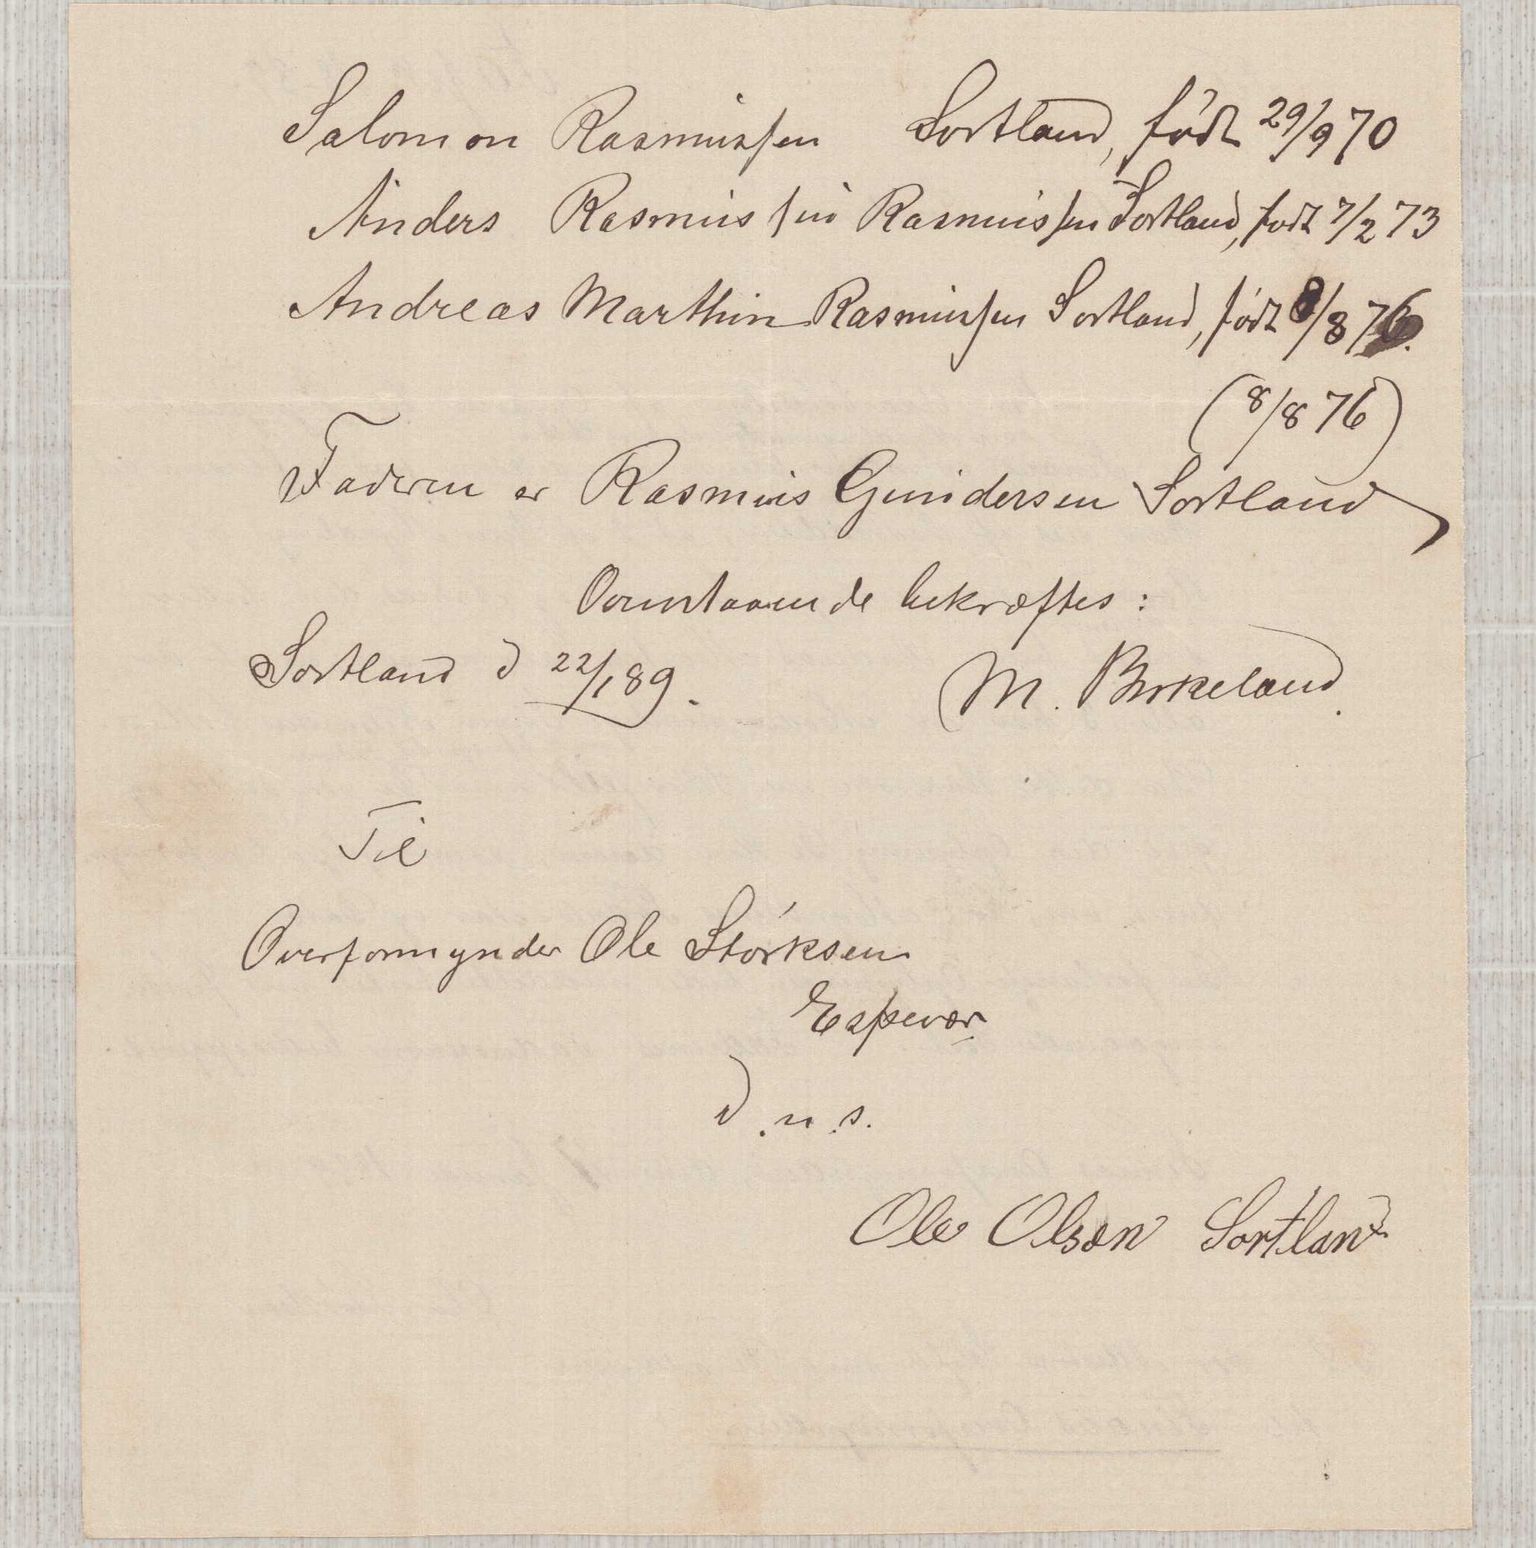 Salomon Rasmussen Sortland, født 29/9 70
Anders Rasmus sen Rasmussen Sortland, født 7/2 73
Andreas Marthin Rasmussen Sortland, født 8/8 76.
(8/8 76)
Faderen er Rasmus Gundersen Sortland
Ovenstaaende bekræftes:
Sortland d 22/1 89. M. Birkeland.
Til
Overformynder Ole Størksen
Espevær
d.n.s.
Ole Olsen Sortland